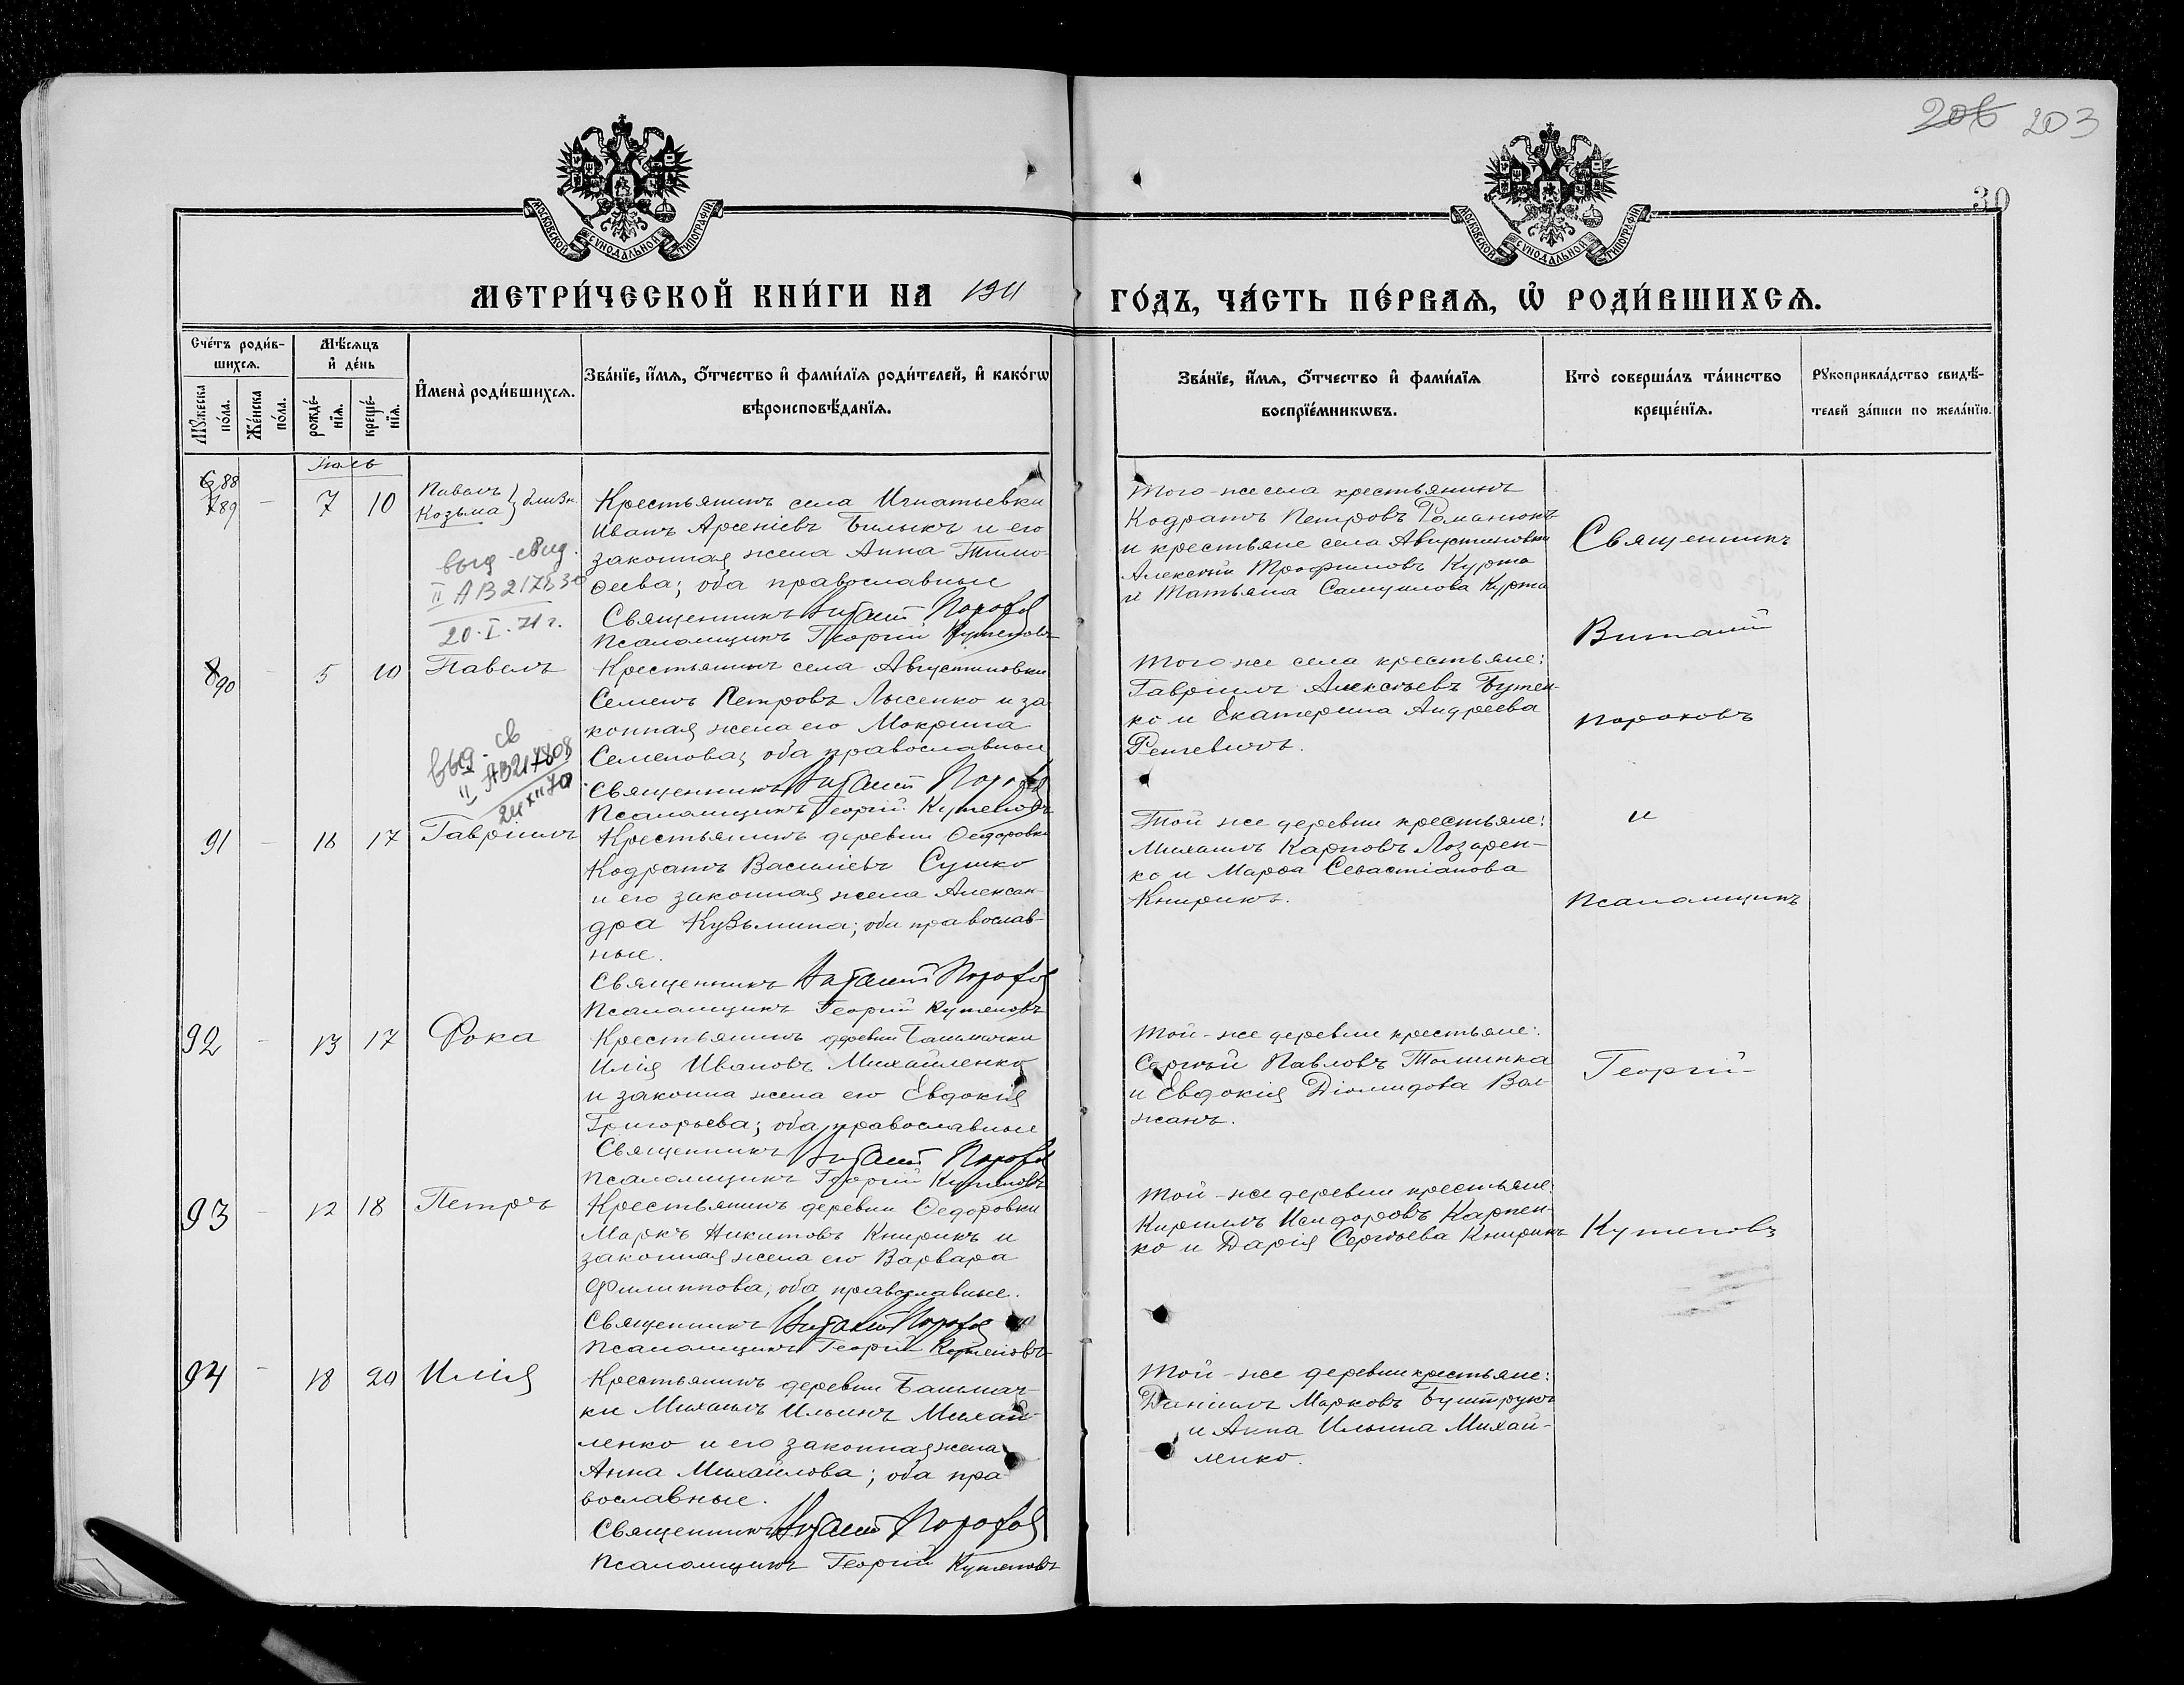 206 203
30
МОСКОВСКОЙ СѴНОДАЛЬНОЙ ТИПОГРАФІИ
МОСКОВСКОЙ СѴНОДАЛЬНОЙ ТИПОГРАФІИ
МЕТРИ́ЧЕСКОЙ КНИ́ГИ НА 1911 ГО́ДЪ, ЧА́СТЬ ПЕ́РВАѦ, Ѡ҆ РОДИ́ВШИХСѦ.
Сче́тъ роди́в-
шихсѧ.
Мꙋ́жеска по́ла.
Же́нска по́ла.
Мѣ́сѧцъ
и҆ де́нь
рожде́-нїѧ.
креще́-нїѧ.
И҆мена̀ роди́вшихсѧ.
Зва́нїе, и҆́мѧ, ѻ҆́тчество и҆ фами́лїѧ роди́телей, и҆ како́гѡ
вѣроисповѣ́данїѧ.
Зва́нїе, и҆́мѧ, ѻ҆́тчество и҆ фами́лїѧ
воспрїе́мникѡвъ.
Кто̀ соверша́лъ та́инство
креще́нїѧ.
Рꙋкоприкла́дство свидѣ́-
телей за́писи по жела́нїю.
Іюль
88
89 - 7 10
Павелъ
Козьма } близн.
выд свид.
II АВ 217830
20.I.71 г.
Крестьянинъ села Игнатьевки
Иванъ Арсеніевъ Билыкъ и его
законная жена Анна Тимо-
ѳеева; оба православные
Священникъ Виталій Пороховъ
Псаломщикъ Георгій Кутеповъ
Того-же села крестьянинъ
Кодратъ Петровъ Романюкъ
и крестьяне села Августиновки
Алексѣй Трофимовъ Курта
и Татьяна Самуилова Курта
90 - 5 10 Павелъ
выд. св
II АВ217808
24 XII 70
Крестьянинъ села Августиновки
Семенъ Петровъ Лысенко и за
конная жена его Мокрина
Семенова; оба православные
Священникъ Виталій Пороховъ
Псаломщикъ Георгій Кутеповъ
Того же села крестьяне:
Гавріилъ Алексѣевъ Бутен-
ко и Екатерина Андреева
91 - 16 17 Гавріилъ
Крестьянинъ деревни Ѳедоровки
Кодратъ Василіевъ Сушко
и его законная жена Алексан-
дра Кузьмина; оба православ-
ные.
Священникъ Виталій Пороховъ
Псаломщикъ Георгій Кутеповъ
Той же деревни крестьяне:
Михаилъ Карповъ Лозарен-
ко и Марѳа Севастіанова
Книрикъ.
92 - 13 17 Фока
Крестьянинъ деревни Башмачки
Илія Ивановъ Михайленко
и законна жена его Евдокія
Григорьева; оба православные
Священникъ Виталій Пороховъ
Псаломщикъ Георгій Кутеповъ
Той-же деревни крестьяне:
Сергѣй Павловъ Толинка
и Евдокія Діомидова Вол-
жанъ.
93 - 12 18 Петръ
Крестьянинъ деревни Ѳедоровки
Маркъ Никитовъ Книрикъ и
законная жена его Варвара
Филиппова, оба православные.
Священникъ Виталій Пороховъ
Псаломщикъ Георгій Кутеповъ
Той-же деревни крестьяне:
Кириллъ Исидоровъ Карпен-
ко и Дарія Сергѣева Книрикъ
94 - 18 20 Илія
Крестьянинъ деревни Башмач-
ки Михаилъ Ильинъ Михай-
ленко и его законная жена
Анна Михайлова; оба пра-
вославные.
Священникъ Виталій Пороховъ
Псаломщикъ Георгій Кутеповъ
Той-же деревни крестьяне:
Даніилъ Марковъ
и Анна Ильина Михай-
ленко.
Священникъ
Виталій
Пороховъ
и
Псаломщикъ
Георгій
Кутеповъ